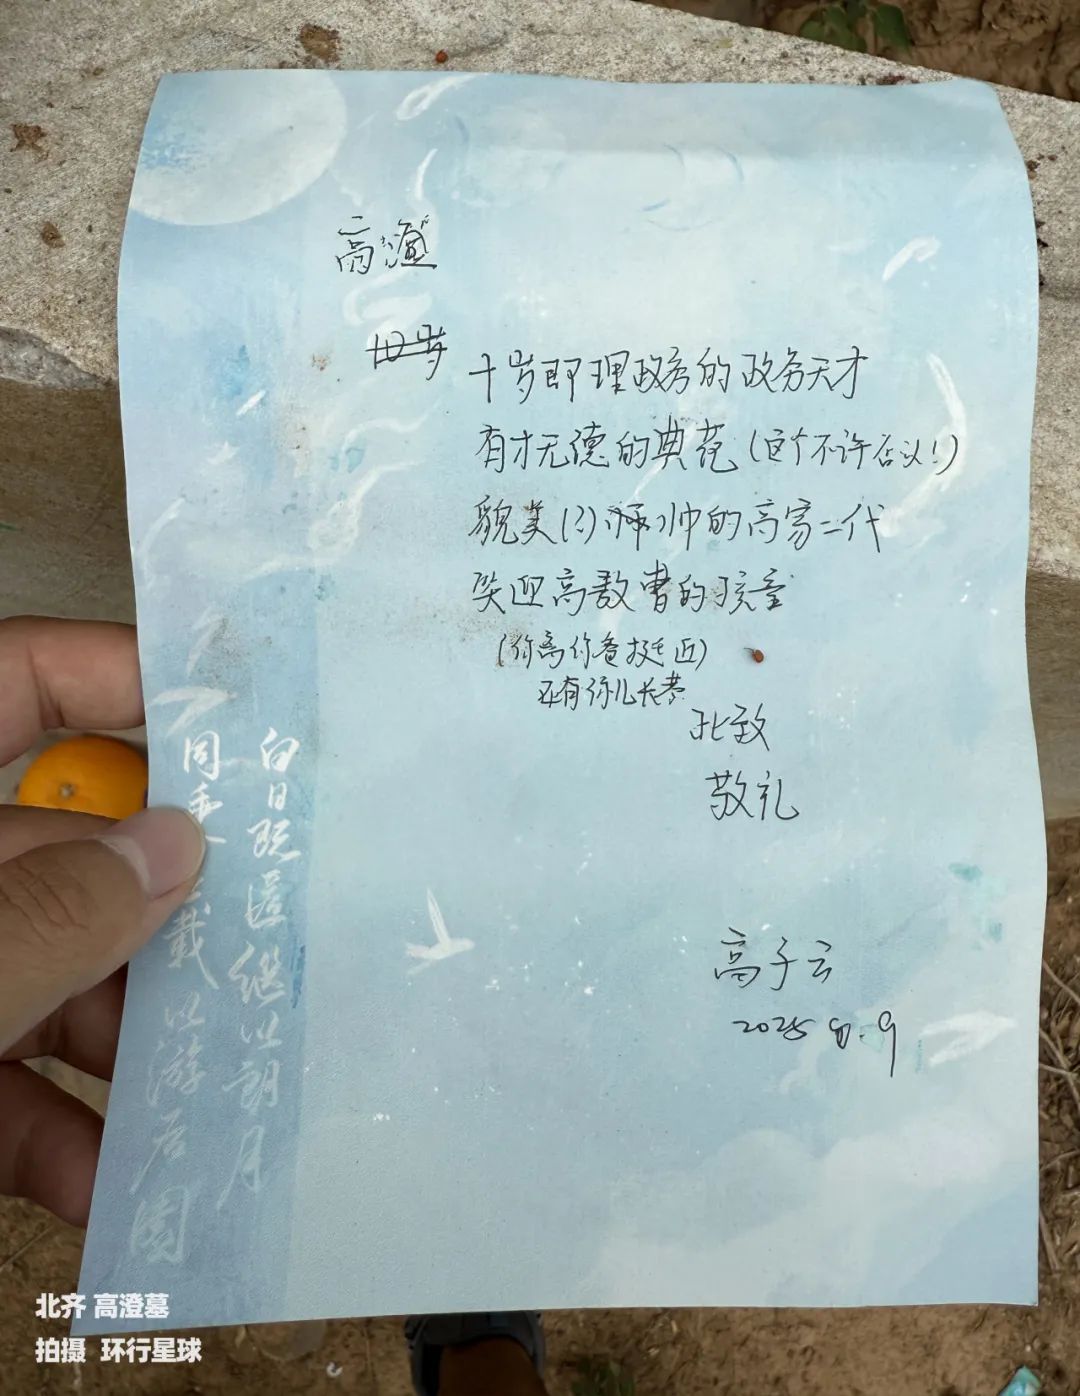 高澄
十岁
十岁即理政务的政务天才
有才无德的典范（这个不许否认！）
貌美（？）帅的高家二代
笑迎高敖曹的孩童
（你离你爸挺近）
还有你儿长恭
此致
敬礼
高子云
2025 8.9
白日既匿继以朗月
同乘 载以游后园
北齐 高澄墓
拍摄 环行星球